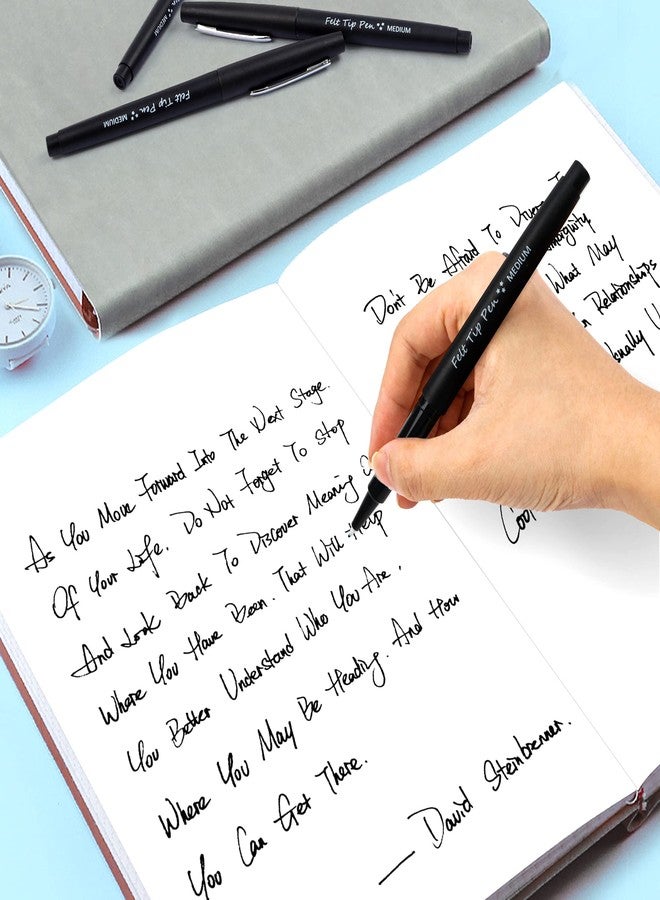 Felt Tip Pen MEDIUM
Felt Tip Pen MEDIUM
As You Move Forward Into The Next Stage.
Of Your Life. Do Not Forget To Stop
And Look Back To Discover Meaning
Where You Have Been. That Will Help
You Better Understand Who You Are.
Where You May Be Heading. And How
You Can Get There.
— David Steinbrenner.
Don't Be Afraid To
What May
Relationships
Felt Tip Pen MEDIUM